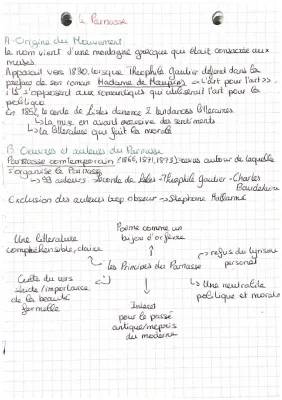 Le Parnasse
A. Origine du Mouvement
le nom vient d'une montagne grecque qui était consacrée aux
muses.
Apparait vers 1830, lorsque Théophile Gautier défend dans la
préface de son roman Madame de Maupin → «L'art pour l'art».
ils s'opposent aux romantiques qui utilisent l'art pour la
politique
En 1852, leconte de Lisle dénonce 2 tendances littéraires
↳ la mise en avant excessive des sentiments
↳ la littérature qui fait la morale
B. Oeuvres et auteurs du Parnasse
Parnasse contemporain (1866, 1871, 1873): revues autour de laquelle
s'organise le Parnasse
→ 99 auteurs → Leconte de Lisle - Théophile Gautier - Charles
Baudelaire
Exclusion des auteurs trop obscur → Stéphane Mallarmé
Poème comme un
bijou d'orfèvre
Une littérature
compréhensible, claire
→ refus du lyrisme
personnel
les Principes du Parnasse
Culte du vers
/importance
de la beauté
formelle
↳ Une neutralité
politique et morale
Interet
pour le passé
antique/mépris
du moderne